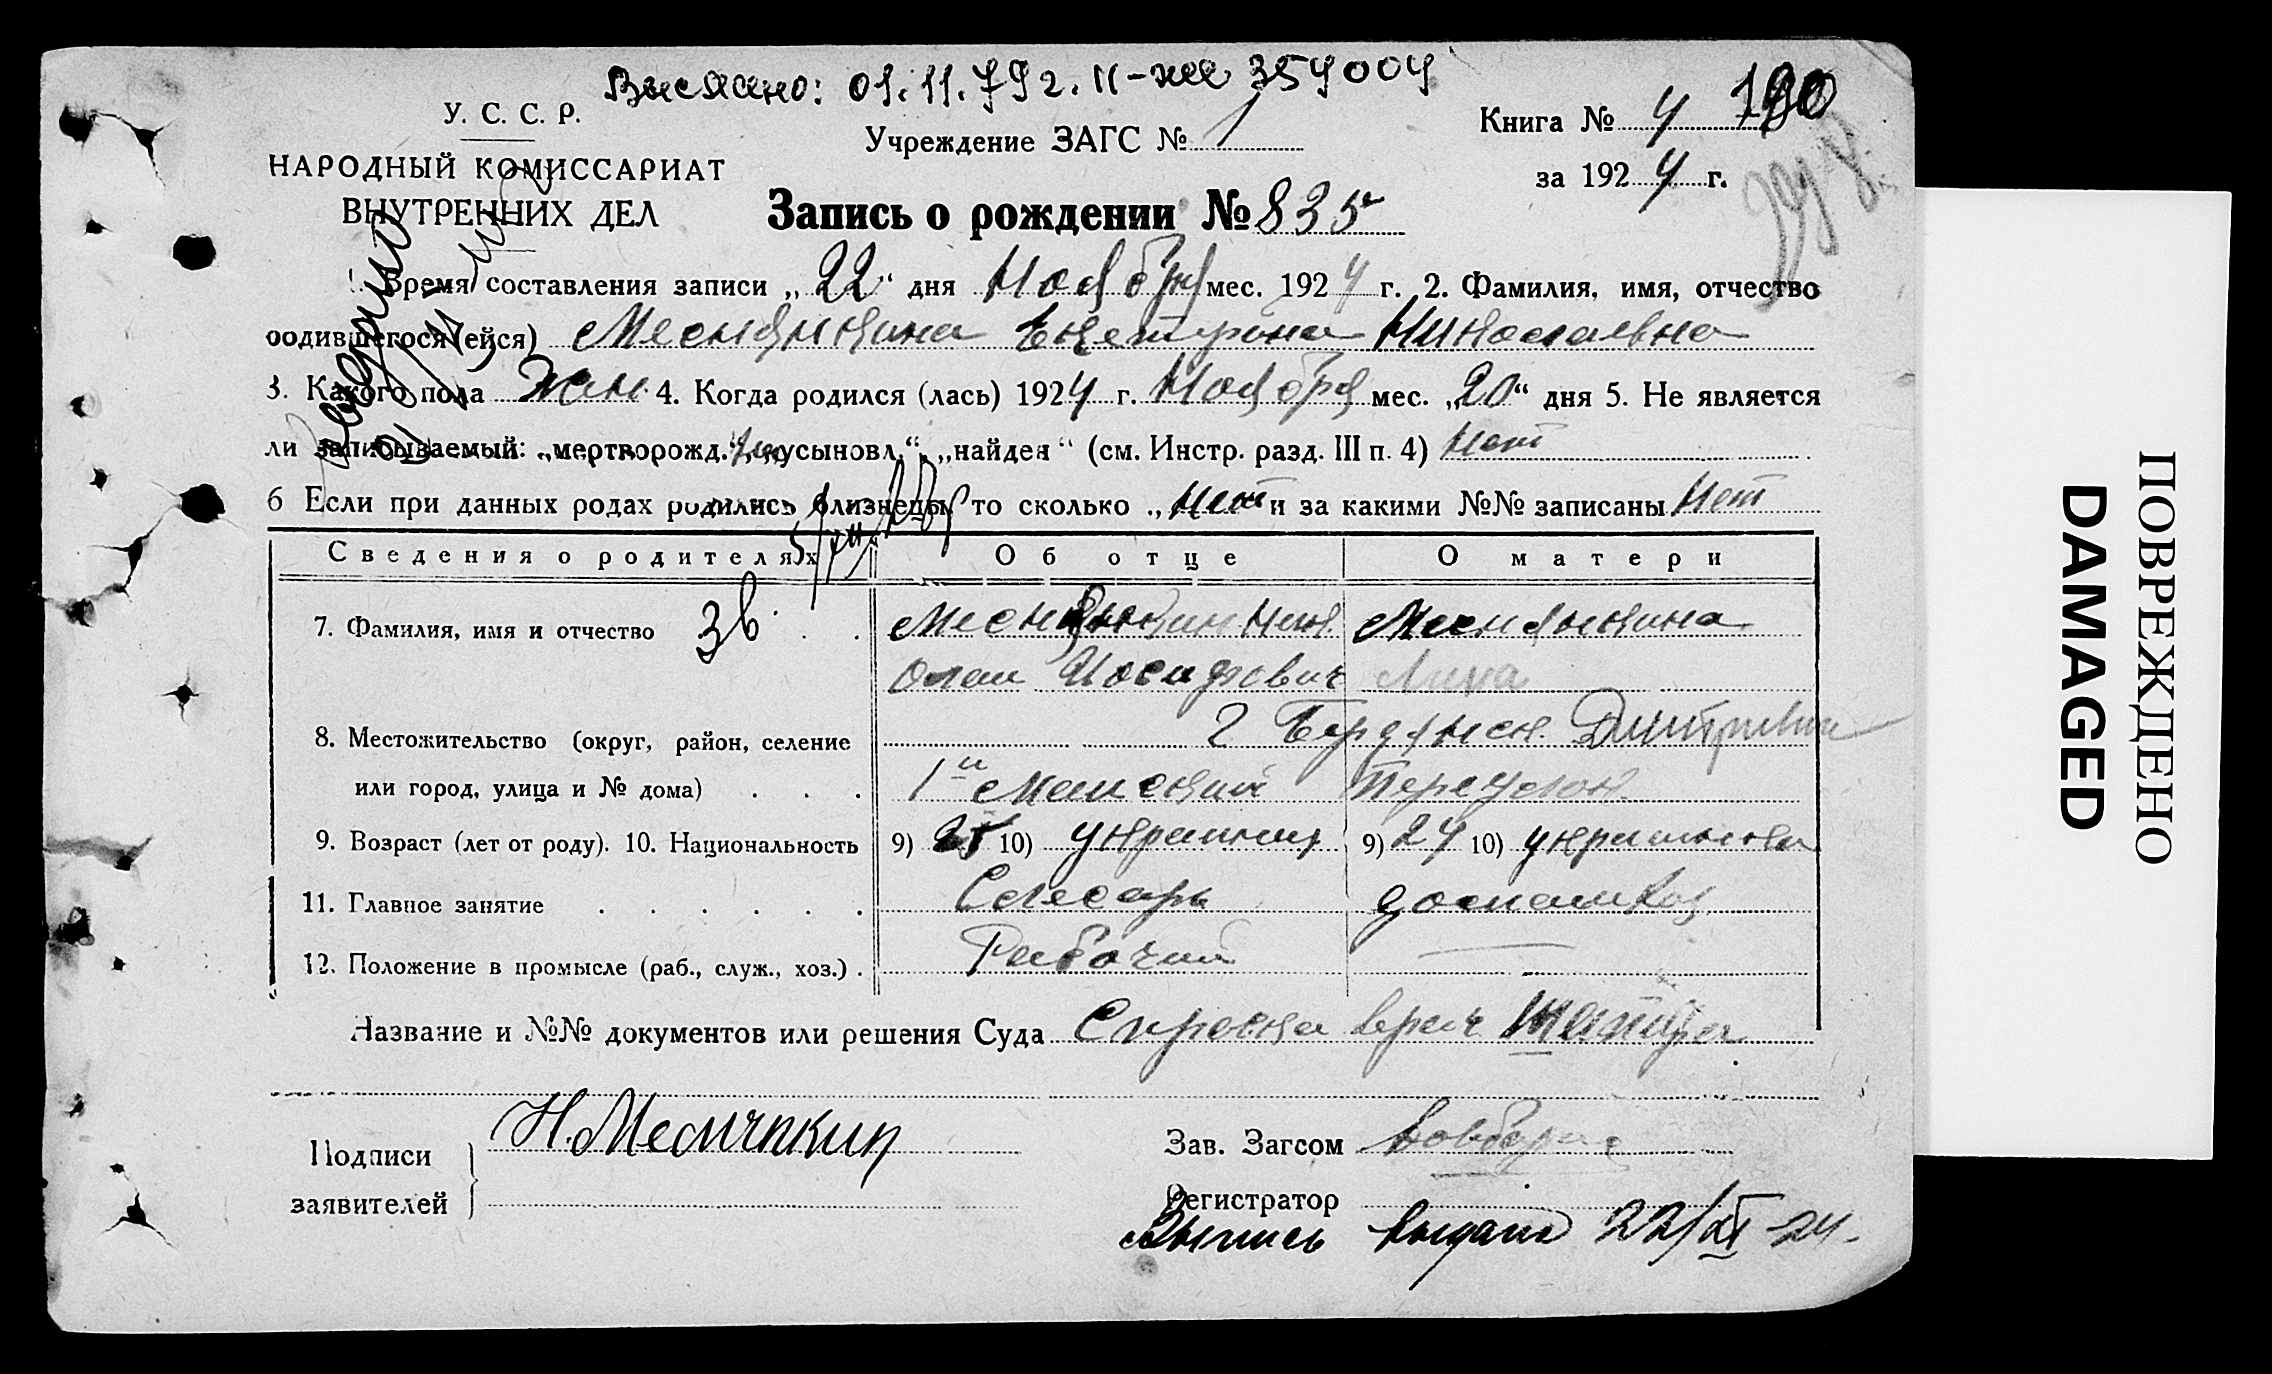 Выслано: 01.11.79 г. II-жс 354004
У. С. С. Р.
НАРОДНЫЙ КОМИССАРИАТ
ВНУТРЕННИХ ДЕЛ
Учреждение ЗАГС № 1
Книга № 4 190
за 1924 г.
Запись о рождении № 835
Время составления записи „22“ дня Ноября мес. 1924 г. 2. Фамилия, имя, отчество
родившегося (ейся) Николаевна
3. Какого пола Жен. 4. Когда родился (лась) 1924 г. Ноября мес. „20“ дня 5. Не является
ли записываемый: „мертворожд.“, „усыновл.“, „найден“ (см. Инстр. разд. III п. 4) Нет
6 Если при данных родах родились близнецы, то сколько „Нет и за какими №№ записаны Нет
Сведения о родителях Об отце О матери
7. Фамилия, имя и отчество Ник
олай Иосифович
8. Местожительство (округ, район, селение г. Бердянск
или город, улица и № дома) 1й переулок
9. Возраст (лет от роду). 10. Национальность 9) 25 10) украинец 9) 24 10) украинка
11. Главное занятие Слесарь домашняя
12. Положение в промысле (раб., служ., хоз.) Рабочий —
Название и №№ документов или решения Суда Справка врач
Подписи
заявителей
Зав. Загсом
Регистратор
Выпись выдана 22/XI 24.
ПОВРЕЖДЕНО
DAMAGED